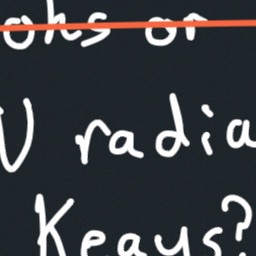 ohs or
V radia
Keays?